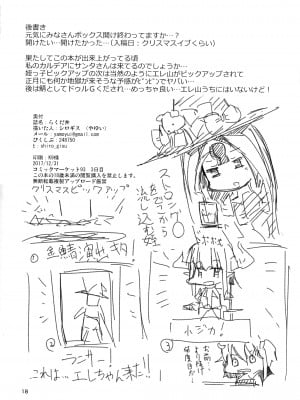 後書き
元気にみなさんボックス開け終わってますか…?
開けたい…開けたかった…(入稿日:クリスマスイブくらい)
果たしてこの本が出来上がってる頃
私のカルデアにサンタさんは来てるのでしょうか…
姪っ子ピックアップの次は当然のようにエレ山がピックアップされて
正月にも何か地獄が来そうな予感がビンビンでつらい。
後は鯖としてドゥルGください…めっちゃ良い…エレ山うちにはいないけど!
誌名:らくだ丼
描いた人:シロギス (やゆい)
mail: yamayui@gmail.com
ぴくしぶ: 248150
t: shiro_gisu
印刷:栄光
2017/12/31
コミックマーケット93 3日目
この本の18歳未満の閲覧購入を禁止します。
無断転載複製アップロード厳禁
クリスマスピックアップ
ストロングへ
流し込む姪
金鯖演出
ランサー!
これは…エレちゃん来た!!
小ジカ!
18